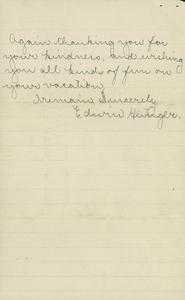 Again thanking you for
your kindness, and wishing
you all kinds of fun on
your vacation,
I remain Sincerely,
Edwin